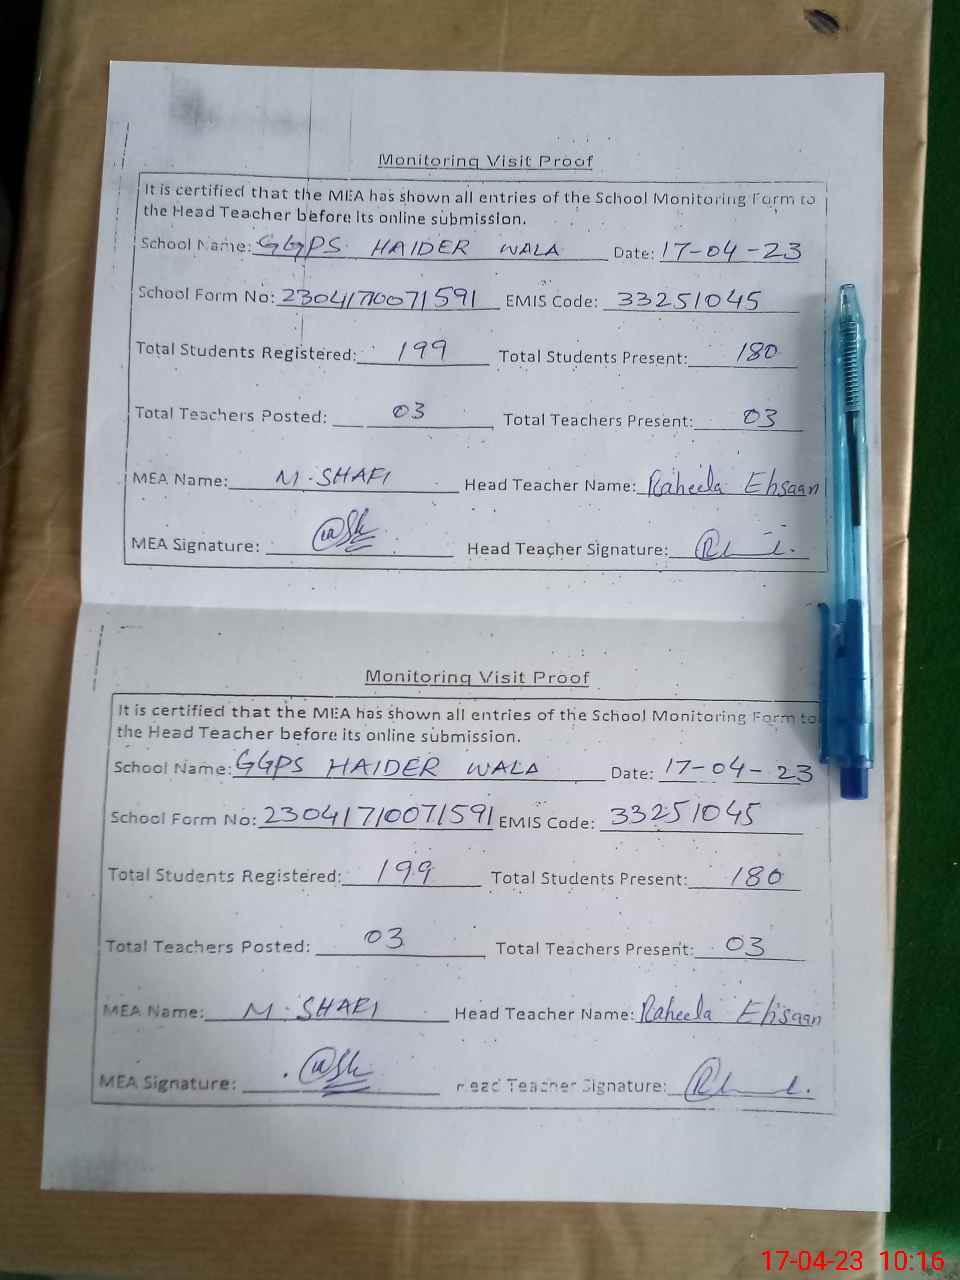 Monitoring Visit Proof
It is certified that the MEA has shown all entries of the School Monitoring Form to
the Head Teacher before its online submission.
School Name: GGPS HAIDER WALA Date: 17-04-23
School Form No: 23041710071591 EMIS Code: 33251045
Total Students Registered: 199 Total Students Present: 180
Total Teachers Posted: 03 Total Teachers Present: 03
MEA Name: M. SHAFI Head Teacher Name: Raheela Ehsaan
MEA Signature: Head Teacher Signature:
Monitoring Visit Proof
It is certified that the MEA has shown all entries of the School Monitoring Form to
the Head Teacher before its online submission.
School Name: GGPS HAIDER WALA Date: 17-04-23
School Form No: 23041710071591 EMIS Code: 33251045
Total Students Registered: 199 Total Students Present: 180
Total Teachers Posted: 03 Total Teachers Present: 03
MEA Name: M. SHAFI Head Teacher Name: Raheela Ehsaan
MEA Signature: Head Teacher Signature:
17-04-23 10:16